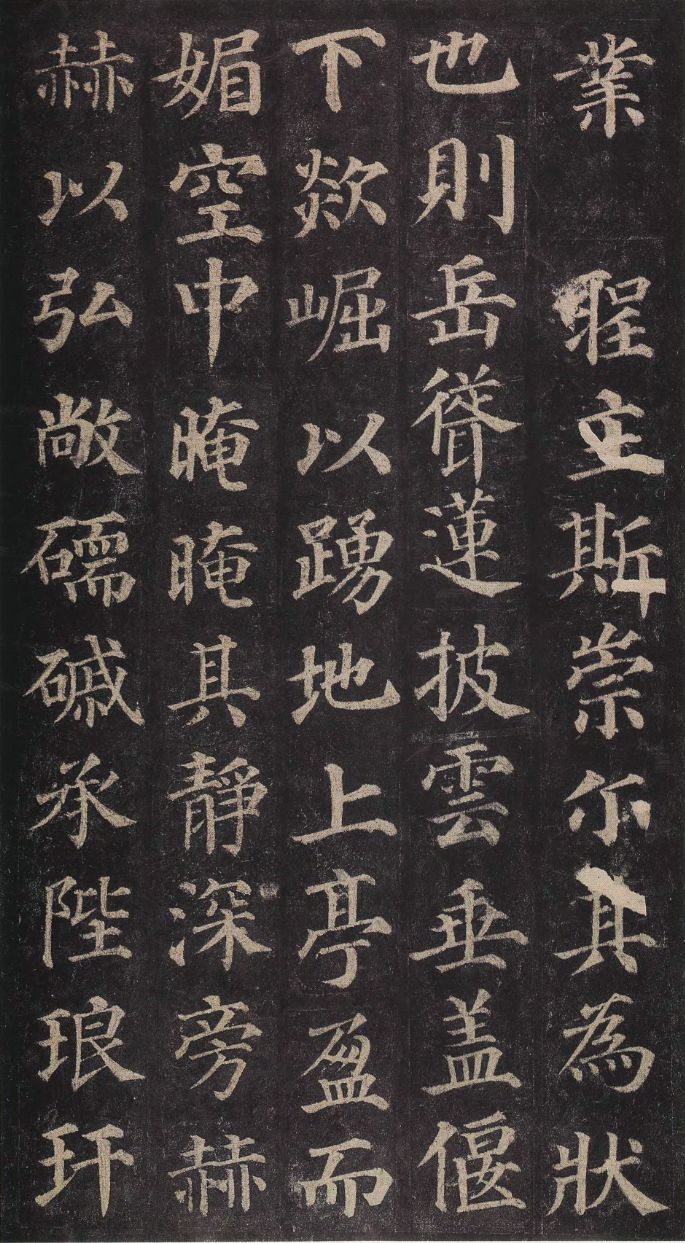 業 聖主斯崇尒其為狀
也則岳聳蓮披雲垂盖偃
下欻崛以踴地上亭盈而
媚空中晻晻其靜深旁赫
赫以弘敞礝磩承陛琅玕